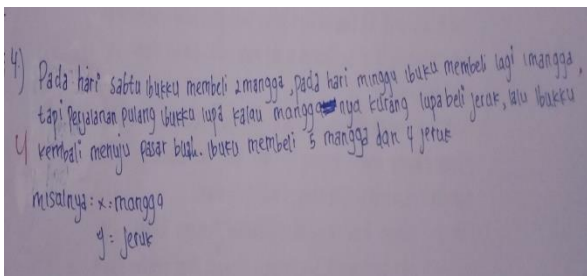 4.) Pada hari sabtu ibukku membeli 2 mangga, pada hari minggu ibuku membeli lagi 1 mangga,
tapi perjalanan pulang ibukku lupa kalau mangga nya kurang lupa beli jeruk, lalu ibukku
4 kembali menuju pasar buah. ibuku membeli 5 mangga dan 4 jeruk
misalnya : x = mangga
y = jeruk